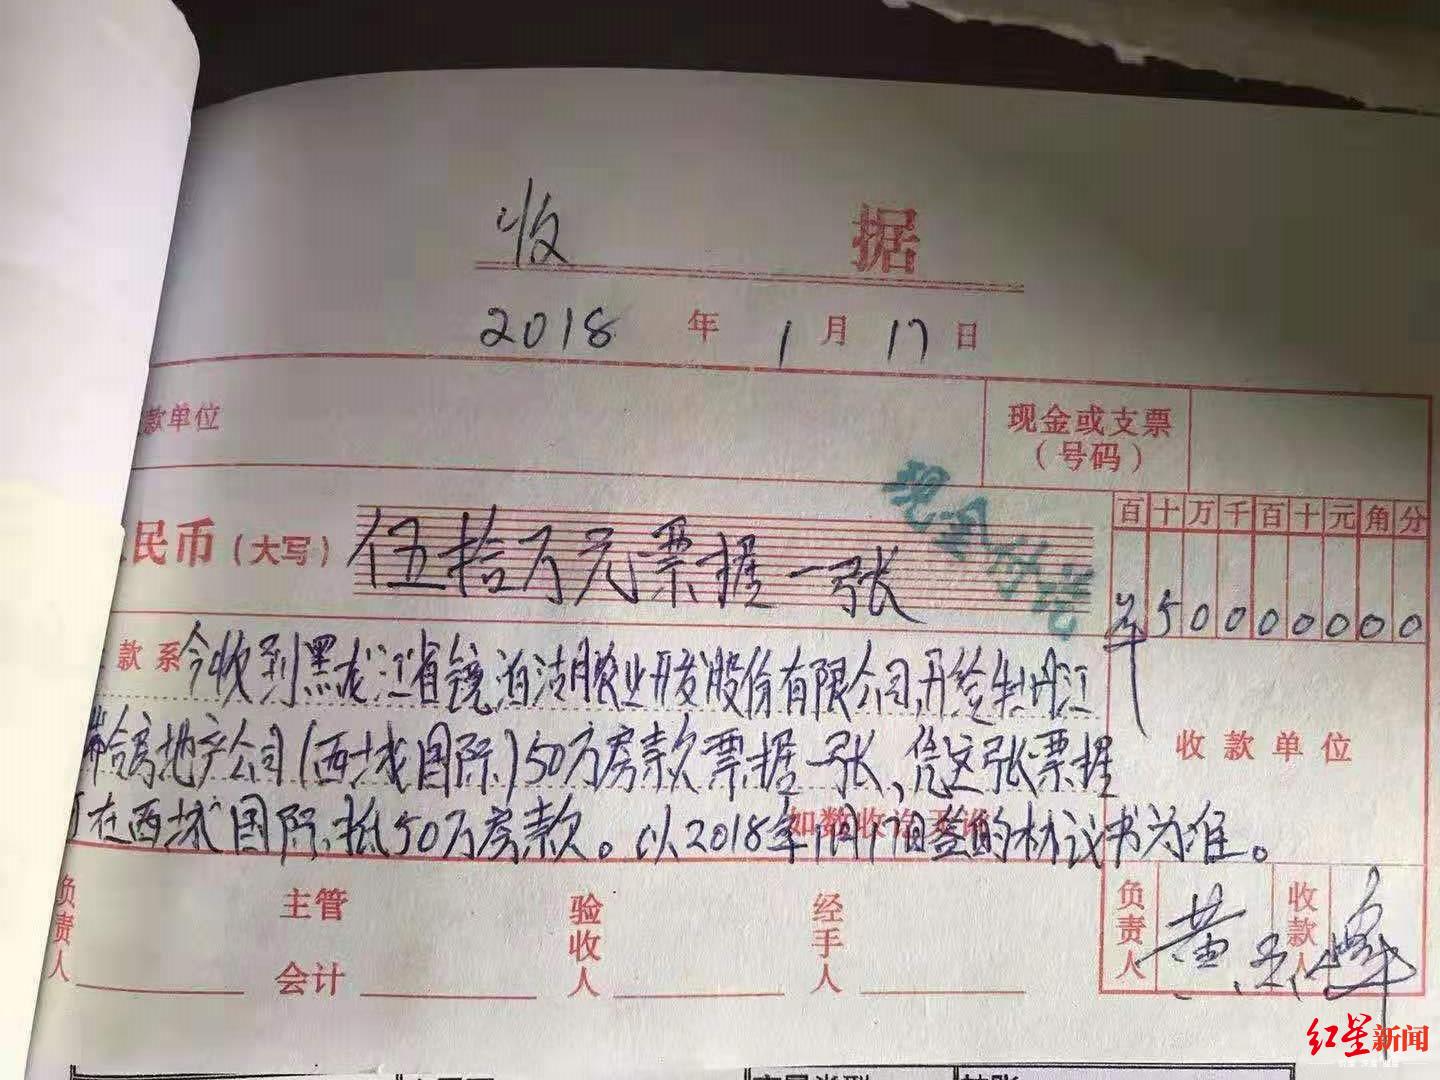 收 据
2018 年 1 月 17 日
款单位
现金或支票
（号码）
民币（大写）伍拾万元票据一张
百十万千百十元角分
¥50000000
款系 今收到黑龙江省镜泊湖农业开发股份有限公司开给牡丹江
房地产公司（西城国际）50万房款票据一张、凭这张票据
在西城国际抵50万房款。以2018年1月17日签的协议书为准。
收款单位
负责人
主管
会计
验收人
经手人
负责人 黄
收款人
红星新闻